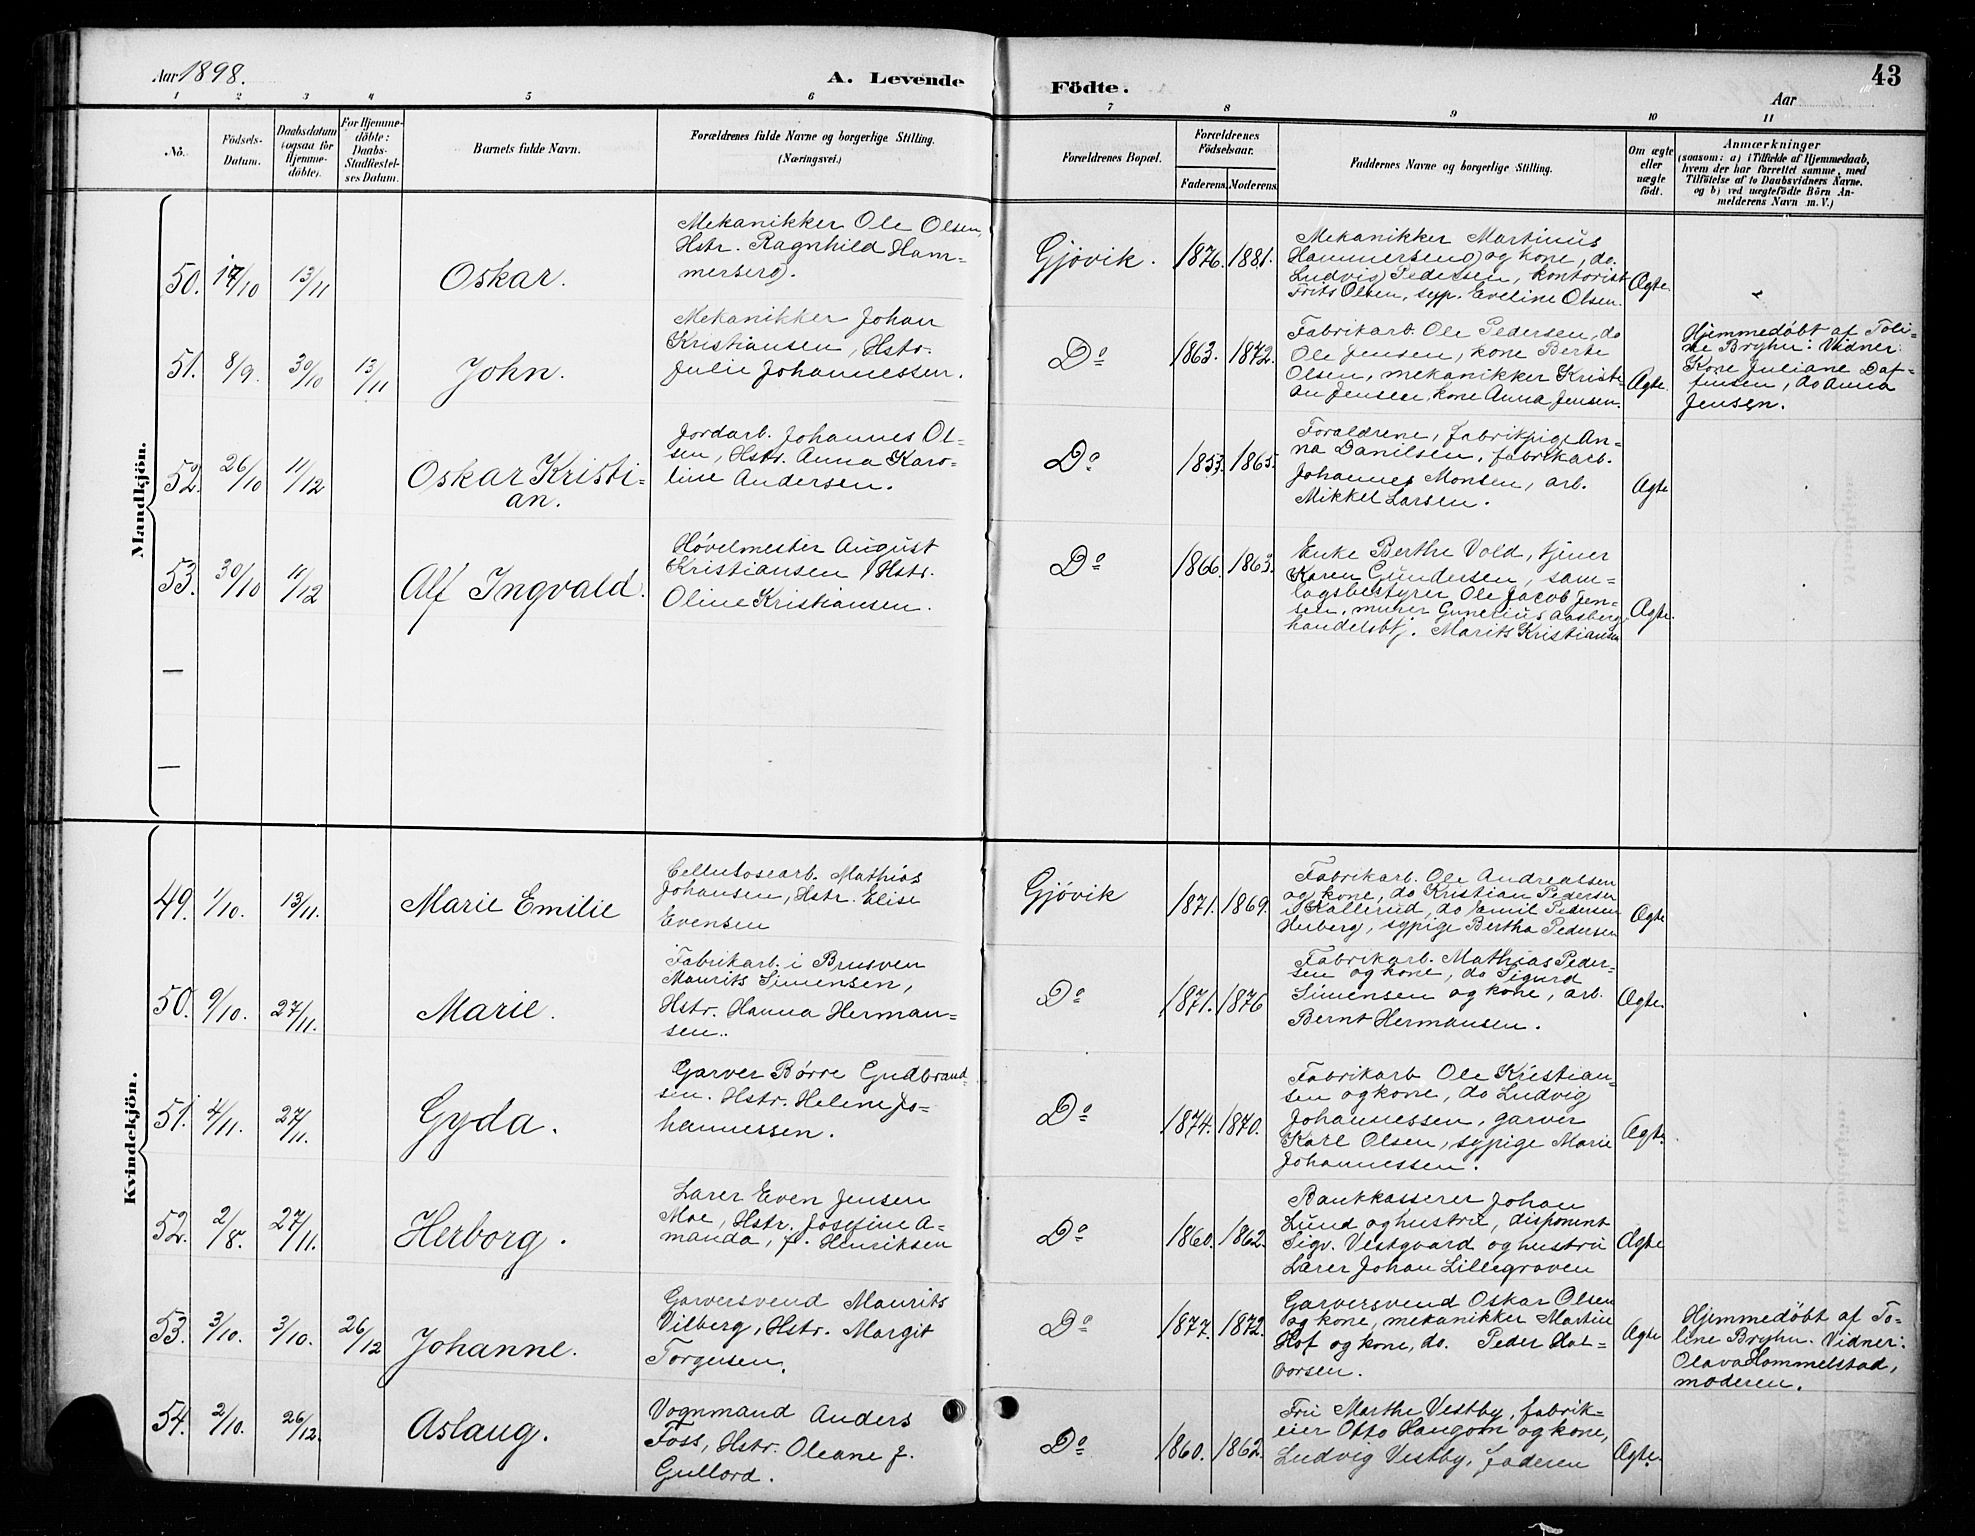 Aar 1898.
A. Levende
Födte.
43
Aar
1 2 3 4 5 6 7 8 9 10 11
No.
Födsels-
Datum.
Daabsdatum
(ogsaa for
Hjemme-
döbte).
For Hjemme-
döbte:
Daabs-
Stadfæstel-
ses Datum.
Barnets fulde Navn.
Forældrenes fulde Navne og borgerlige Stilling.
(Næringsvei.)
Forældrenes Bopæl.
Forældrenes
Födselsaar.
Faderens. Moderens.
Faddernes Navne og borgerlige Stilling.
Om ægte
eller
uægte
födt.
Anmærkninger
(saasom: a) i Tilfælde af Hjemmedaab,
hvem der har forrettet samme, med
Tilföielse af to Daabsvidners Navne,
og b) ved uægtefödte Börn An-
melderens Navn m. V.)
Mandkjön.
50. 17/10 13/11
Oskar.
Mekanikker Ole Olsen,
Hstr. Ragnhild Ham-
mersero).
Gjövik. 1876. 1881.
Mekanikker Martinus
Hammerseng) og kone, do.
Ludvig) Pedersen, kontorist
Frits Olsen, syp. Eveline Olsen.
Ægte.
51. 8/9. 30/10 13/11
John.
Mekanikker Johan
Kristiansen, Hstr.
Julie Johannessen.
Do 1863. 1872.
Fabrikarb. Ole Pedersen, do
Ole Jensen, kone Berte
Olsen, mekanikker Kristi-
an Jensen, kone Anna Jensen.
Ægte.
Hjemmedöbt af Toli-
ne Bryhn: Vidner:
Kone Juliane Daf-
finsen, do Anna
Jensen.
52. 26/10 11/12
Oskar Kristi-
an.
Jordarb. Johannes Ol-
sen, Hstr. Anna Karo-
line Andersen.
Do 1853. 1865.
Forældrene, fabrikpige An-
na Danilsen, fabrikarb.
Johannes Monsen, arb.
Mikkel Larsen.
Ægte
53. 30/10 11/12
Alf Ingvald.
Hövelmester August
Kristiansen, Hstr.
Oline Kristiansen.
Do 1866. 1863.
Enke Berthe Vold, tjener
Karen Gundersen, sam-
lagsbestyrer Ole Jacob Jen-
sen, murer Gunerius Aasberg,
handelsbtj. Marits Kristiansen
Ægte.
—
—
Kvindekjön.
49. 1/10. 13/11.
Marie Emilie
Cellulosearb. Mathias
Johansen, Hstr. Elise
Evensen
Gjövik 1871. 1869.
Fabrikarb. Ole Andreassen
og kone, do Kristian Pedersen
i Kallerud, do Emil Pedersen
Herberg, sypige Bertha Pedersen
Ægte
50. 9/10. 27/11.
Marie.
Fabrikarb. i Brusven
Maurits Simensen,
Hstr. Hanna Herman-
sen.
Do 1871. 1876
Fabrikarb. Mathias Peder-
sen og kone, do Sigurd
Simensen og kone, arb.
Bernt Hermansen.
Ægte.
51. 4/11. 27/11.
Gyda.
Garver Börre Gudbrand-
sen. Hstr. Helene Jo-
hannessen.
Do 1874. 1870.
Fabrikarb Ole Kristian-
sen og kone, do Ludvig
Johannessen, garver
Karl Olsen, sypige Marie
Johannessen.
Ægte.
52. 2/8. 27/11.
Herborg.
Lærer Even Jensen
Moe, Hstr. Josefine A-
manda, f. Henriksen
Do 1860. 1862.
Bankkasserer Johan
Lund og hustru, disponent
Sigv. Vestgaard og hustru
Lærer Johan Lillegraven
Ægte
53. 3/10. 3/10. 26/12
Johanne.
Garversvend Maurits
Vilberg, Hstr. Margit
Torgersen.
Do 1877. 1872.
Garversvend Oskar Olsen
og kone, mekanikker Martin
Hof og kone, do. Peder Hal-
vorsen.
Ægte
Hjemmedöbt af To-
line Bryhn. Vidner:
Olava Hommelstad,
moderen.
54. 2/10. 26/12.
Aslaug.
Vognmand Anders
Foss, Hstr. Oleane f.
Gullord.
Do 1860. 1862.
Fru Marthe Vestby, fabrik-
eier Otto Haugom og kone,
Ludvig Vestby, faderen
Ægte.